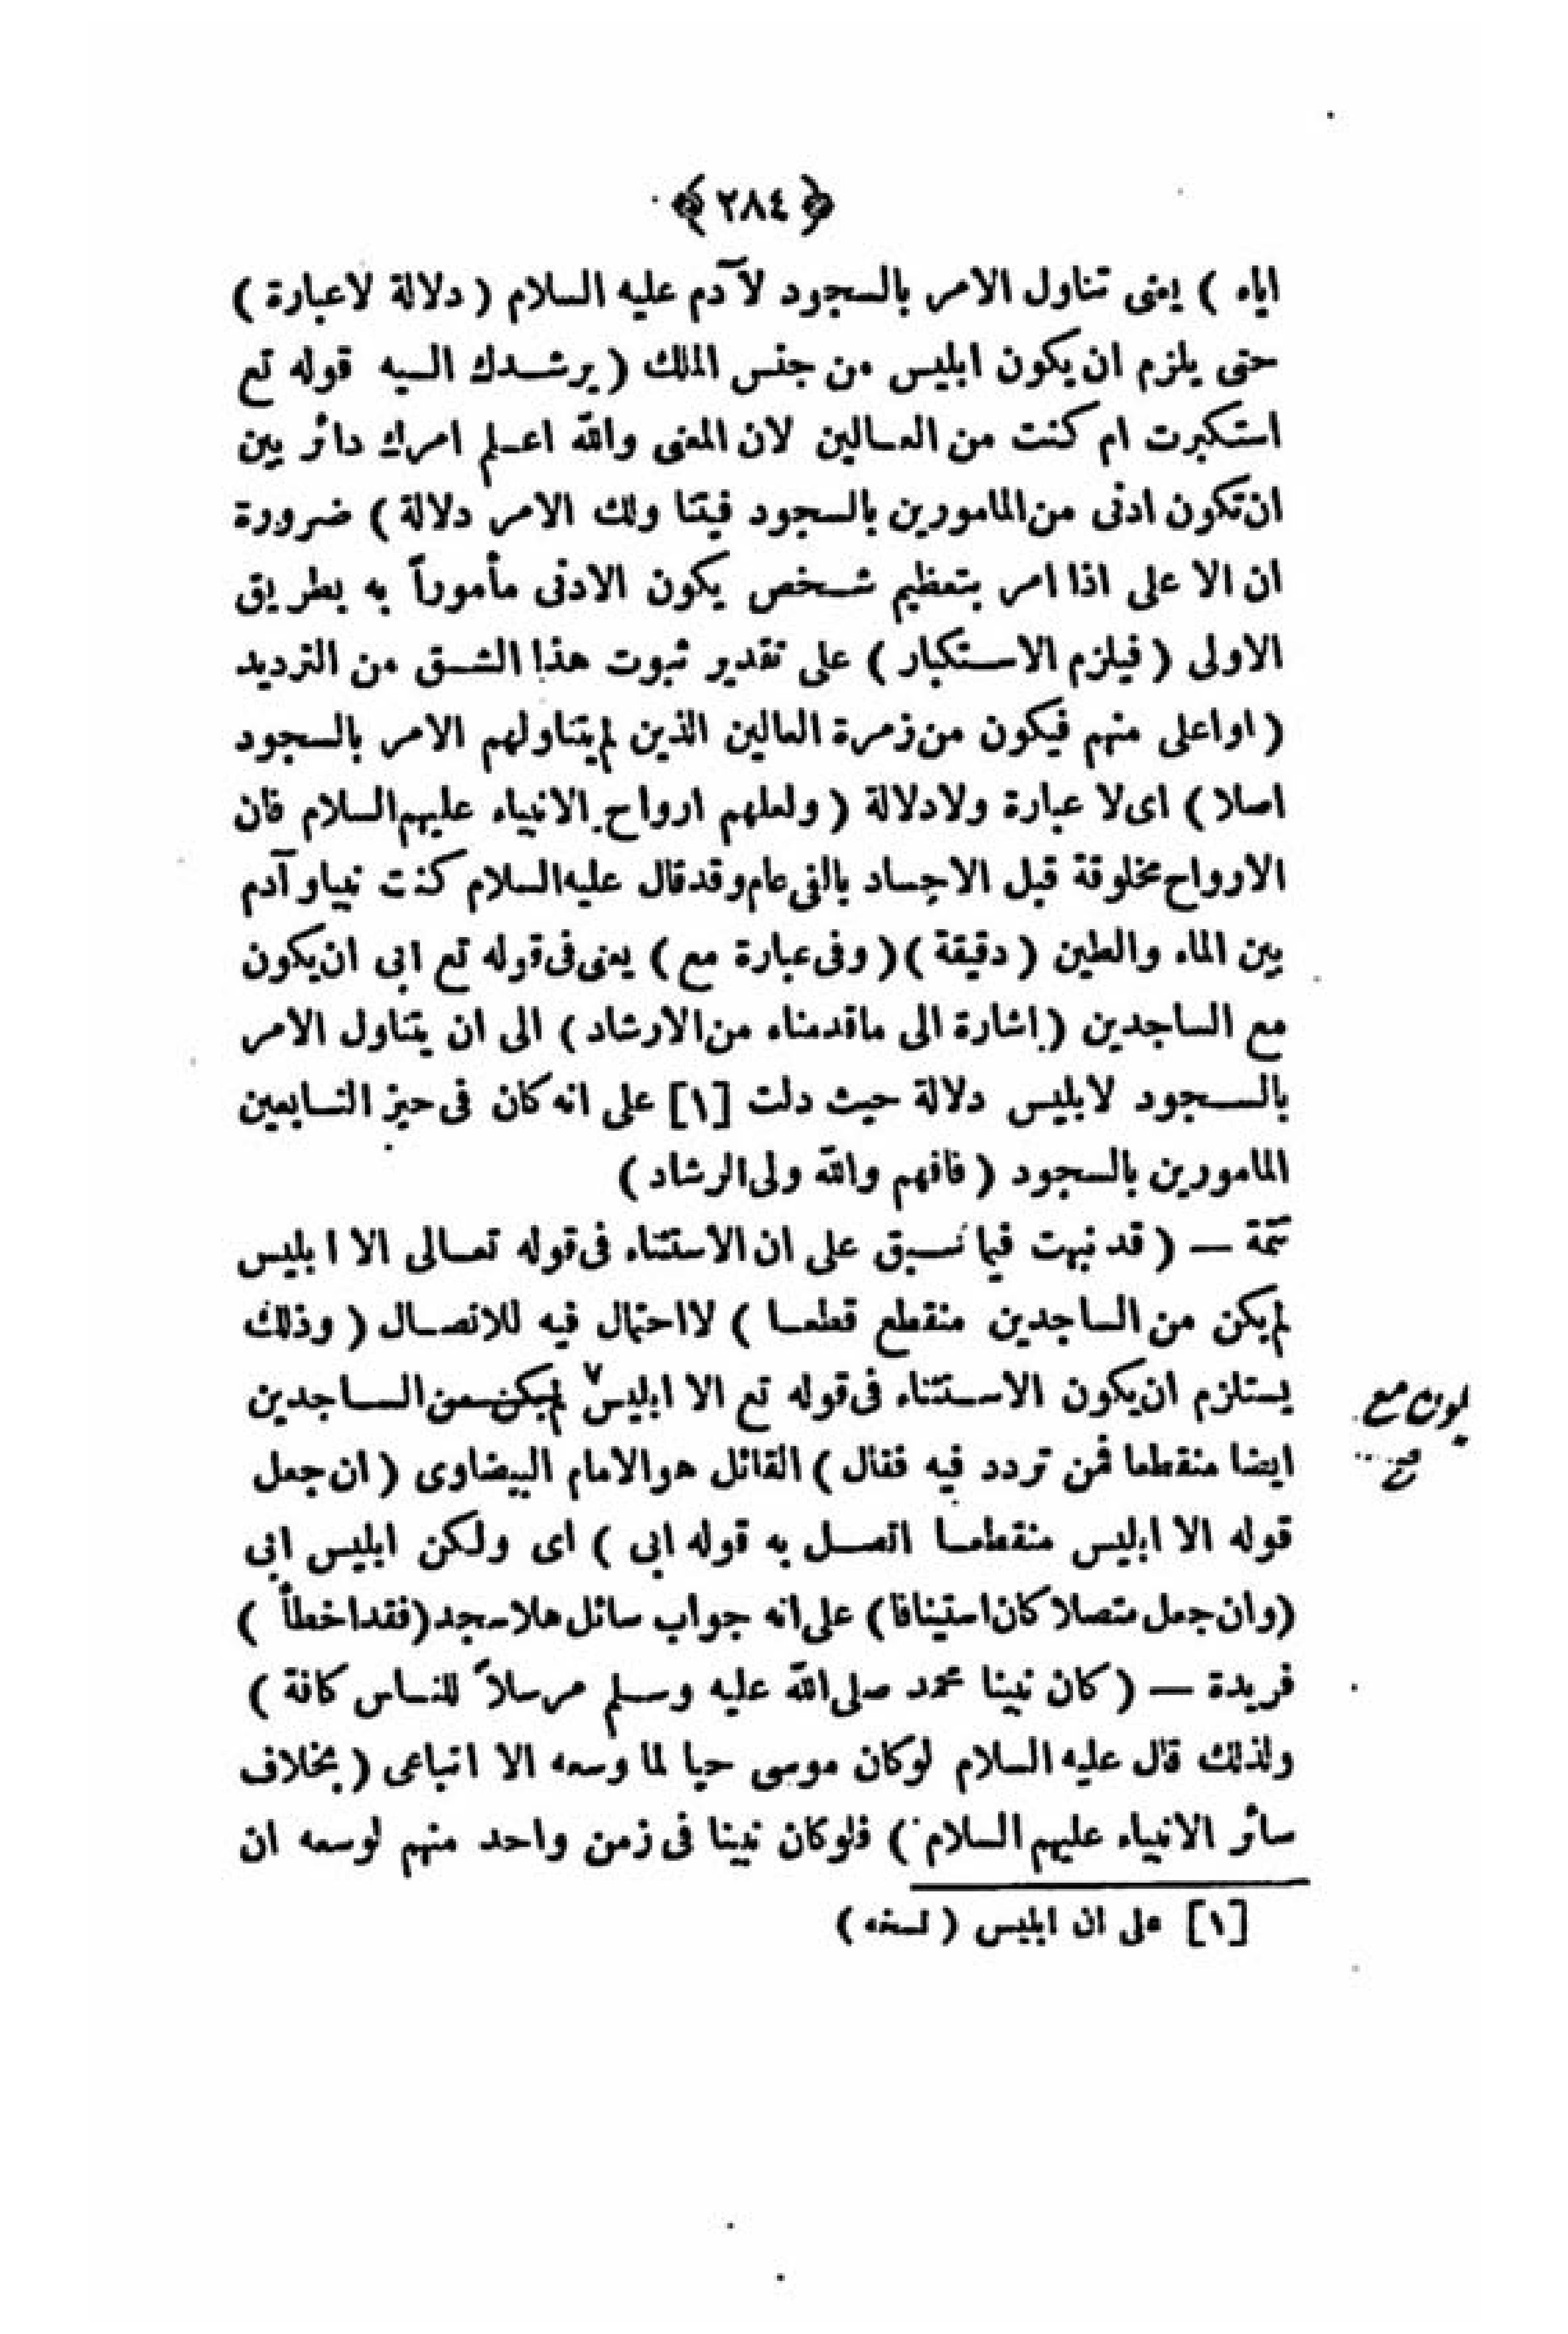 ﴿ ٢٨٤ ﴾
اياه ) يعنى تناول الامر بالسجود لآدم عليه السلام ( دلالة لاعبارة )
حتى يلزم ان يكون ابليس من جنس الملك ( يرشدك اليه قوله تع
استكبرت ام كنت من العالين لان المعنى والله اعلم امرك دائر بين
ان تكون ادنى من المامورين بالسجود فيتنا ولك الامر دلالة ) ضرورة
ان الا على اذا امر بتعظيم شخص يكون الادنى مأموراً به بطريق
الاولى ( فيلزم الاستكبار ) على تقدير ثبوت هذا الشق من الترديد
( او اعلى منهم فيكون من زمرة العالين الذين لم يتناولهم الامر بالسجود
اصلا ) اى لا عبارة ولا دلالة ( ولعلهم ارواح الانبياء عليهم السلام فان
الارواح مخلوقة قبل الاجساد بالفى عام وقد قال عليه السلام كنت نبيا وآدم
بين الماء والطين ( دقيقة ) ( وفى عبارة مع ) يعنى فى قوله تع ابى ان يكون
مع الساجدين ( اشارة الى ماقدمناه من الارشاد ) الى ان يتناول الامر
بالسجود لابليس دلالة حيث دلت [١] على انه كان فى حيز التابعين
المامورين بالسجود ( فافهم والله ولى الرشاد )
تتمة — ( قد نبهت فيما سبق على ان الاستثناء فى قوله تعالى الا ابليس
لم يكن من الساجدين منقطع قطعا ) لا احتمال فيه للاتصال ( وذلك
يستلزم ان يكون الاستثناء فى قوله تع الا ابليس ٧ لم يكن من الساجدين
يكون مع
ايضا منقطعا فمن تردد فيه فقال ) القائل هو الامام البيضاوى ( ان جعل
قوله الا ابليس منقطعا اتصل به قوله ابى ) اى ولكن ابليس ابى
(وان جعل متصلا كان استينافا) على انه جواب سائل هلا سجد (فقد اخطأ )
فريدة — ( كان نبينا محمد صلى الله عليه وسلم مرسلاً للناس كافة )
ولذلك قال عليه السلام لو كان موسى حيا لما وسعه الا اتباعى ( بخلاف
سائر الانبياء عليهم السلام ) فلو كان نبينا فى زمن واحد منهم لوسعه ان
[١] على ان ابليس ( نسخه )